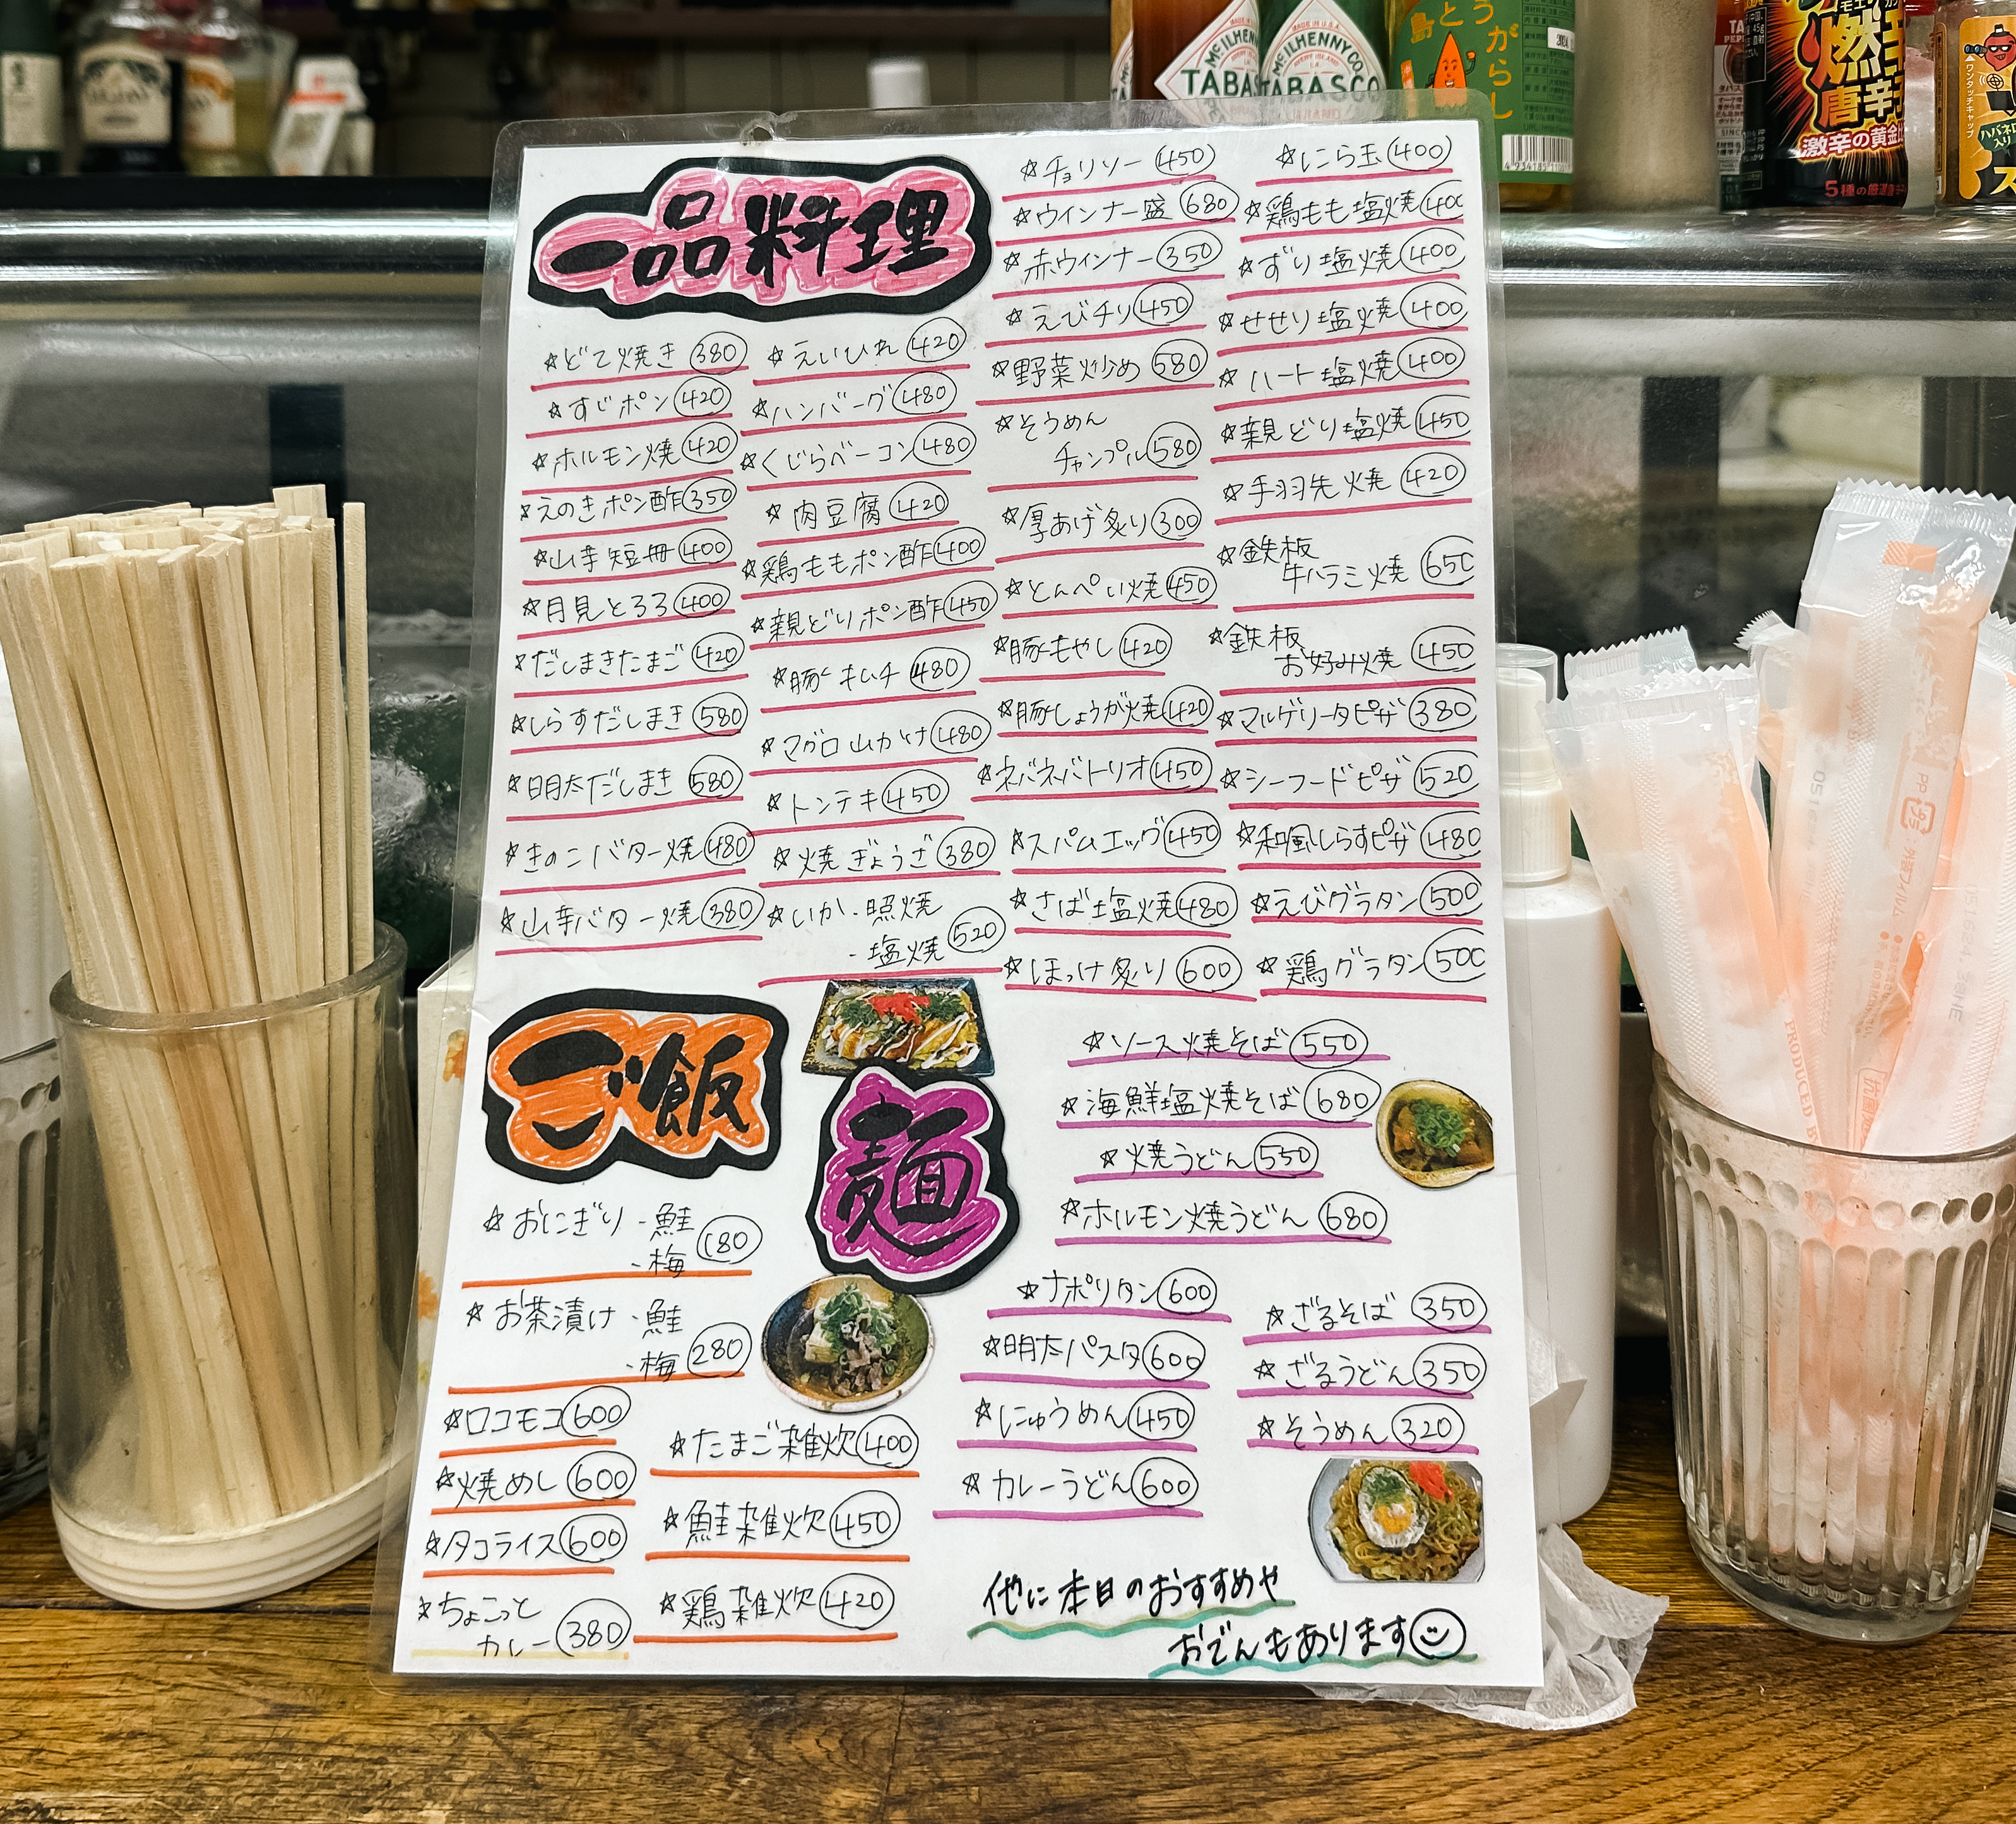 一品料理
☆どて焼き 380
☆すじポン 420
☆ホルモン焼 420
☆えのきポン酢 350
☆山芋短冊 400
☆月見とろろ 400
☆だしまきたまご 420
☆しらすだしまき 580
☆明太だしまき 580
☆きのこバター焼 480
☆山芋バター焼 380
☆えいひれ 420
☆ハンバーグ 480
☆くじらベーコン 480
☆肉豆腐 420
☆鶏ももポン酢 400
☆親どりポン酢 450
☆豚キムチ 480
☆マグロ山かけ 480
☆トンテキ 450
☆焼ぎょうざ 380
☆いか・照焼
・塩焼 520
☆チョリソー 450
☆ウインナー盛 680
☆赤ウインナー 350
☆えびチリ 450
☆野菜炒め 580
☆そうめん
チャンプル 580
☆厚あげ炙り 300
☆とんぺい焼 450
☆豚もやし 420
☆豚しょうが焼 420
☆ネバネバトリオ 450
☆スパムエッグ 450
☆さば塩焼 480
☆ほっけ炙り 600
☆にら玉 400
☆鶏もも塩焼 400
☆ずり塩焼 400
☆せせり塩焼 400
☆ハート塩焼 400
☆親どり塩焼 450
☆手羽先焼 420
☆鉄板
牛ハラミ焼 650
☆鉄板
お好み焼 450
☆マルゲリータピザ 380
☆シーフードピザ 520
☆和風しらすピザ 480
☆えびグラタン 500
☆鶏グラタン 500
ご飯
☆おにぎり・鮭
・梅 180
☆お茶漬け・鮭
・梅 280
☆ロコモコ 600
☆焼めし 600
☆タコライス 600
☆ちょこっと
カレー 380
☆たまご雑炊 400
☆鮭雑炊 450
☆鶏雑炊 420
麺
☆ソース焼そば 550
☆海鮮塩焼そば 680
☆焼うどん 550
☆ホルモン焼うどん 680
☆ナポリタン 600
☆明太パスタ 600
☆にゅうめん 450
☆カレーうどん 600
☆ざるそば 350
☆ざるうどん 350
☆そうめん 320
他に本日のおすすめや
おでんもあります
McILHENNY CO.
TABASCO
McILHENNY CO.
TABASCO
島とうがらし
燃
唐辛子
激辛の黄金比
5種の厳選唐辛
ワンタッチキャップ
ハバネロ
入り